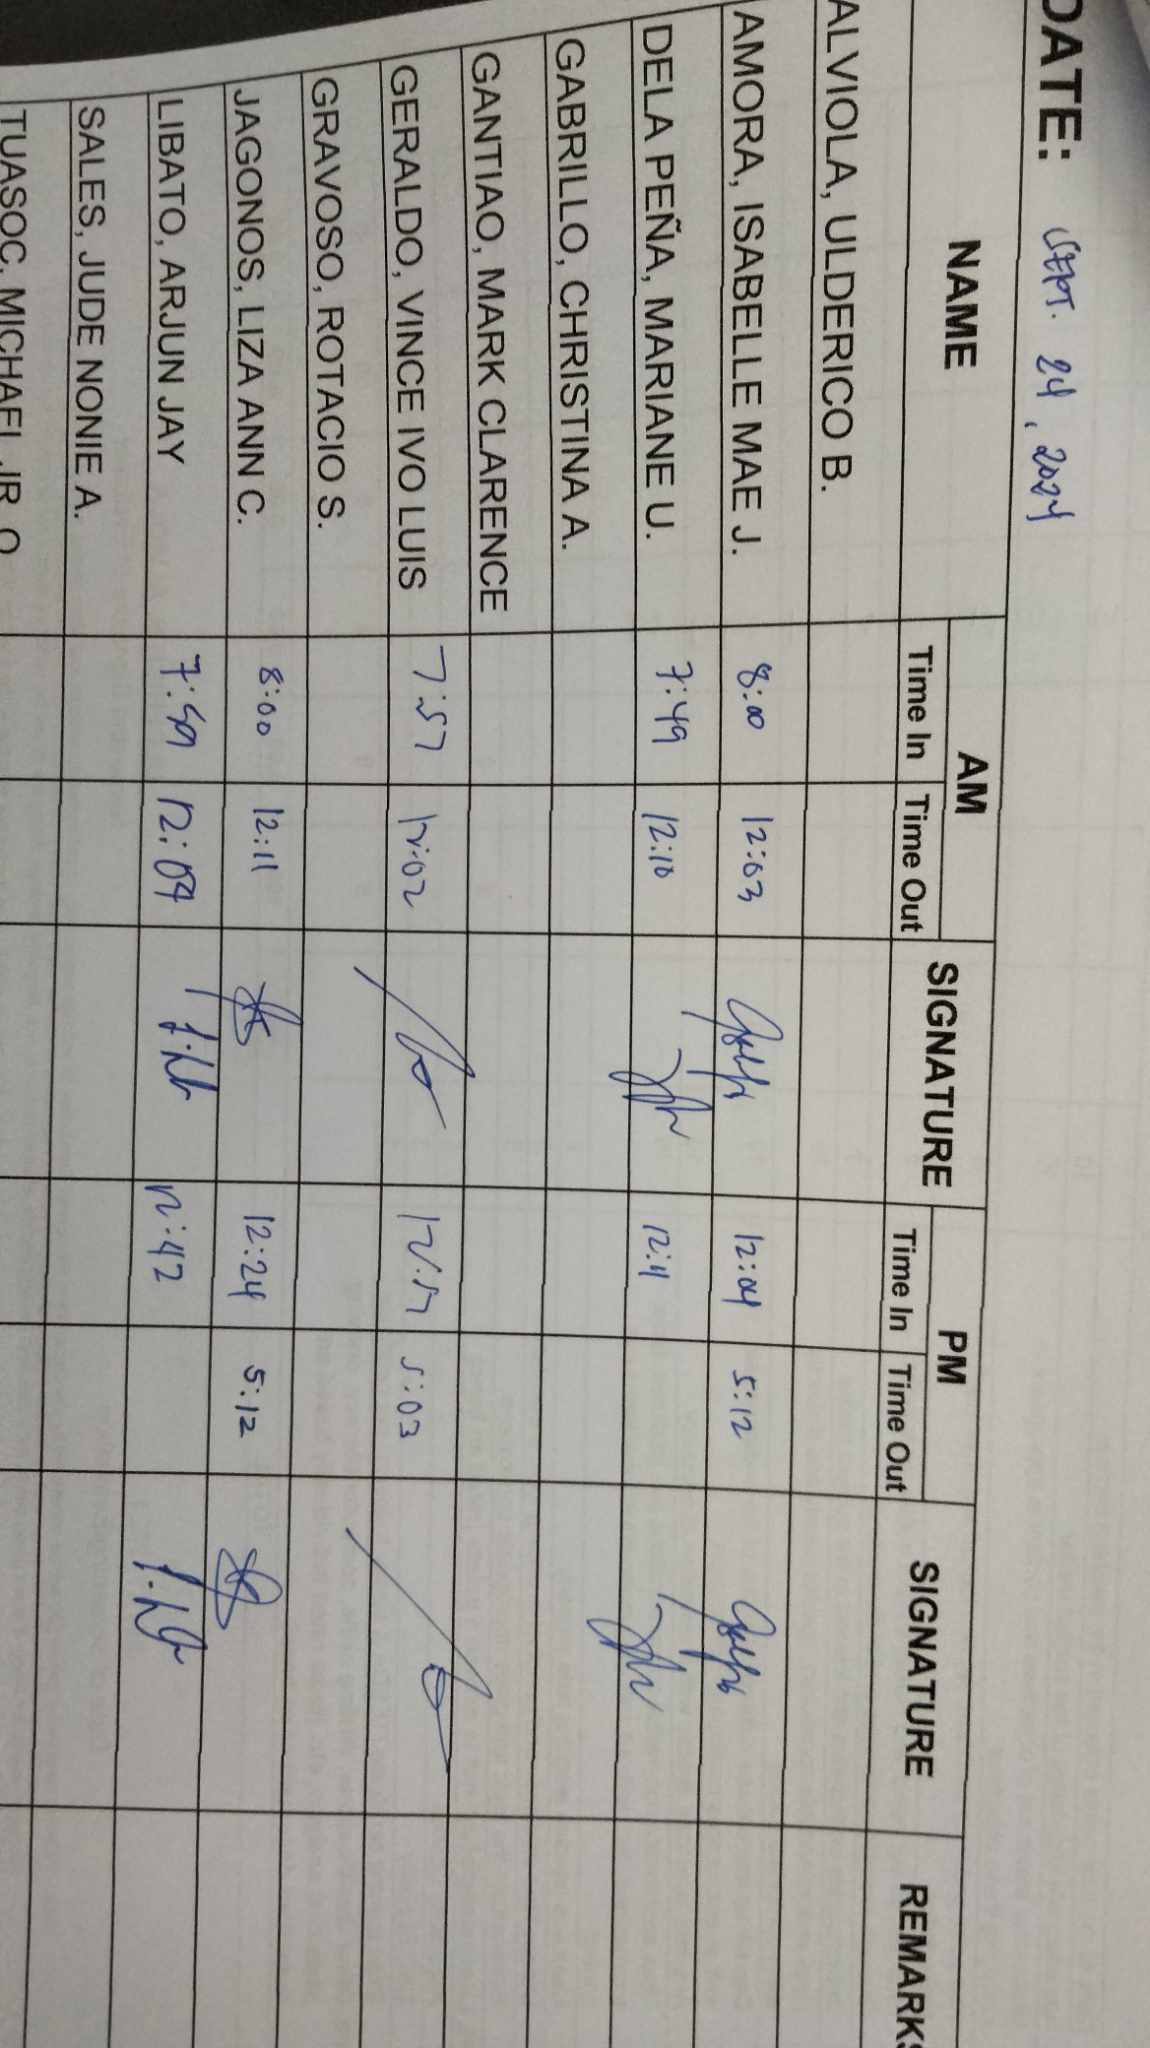 DATE: SEPT. 24, 2024
NAME AM SIGNATURE PM SIGNATURE REMARKS
Time In Time Out Time In Time Out
ALVIOLA, ULDERICO B.
AMORA, ISABELLE MAE J. 8:00 12:03 12:04 5:12
DELA PEÑA, MARIANE U. 7:49 12:10 12:11
GABRILLO, CHRISTINA A.
GANTIAO, MARK CLARENCE
GERALDO, VINCE IVO LUIS 7:57 12:02 5:03
GRAVOSO, ROTACIO S.
JAGONOS, LIZA ANN C. 8:00 12:11 12:24 5:12
LIBATO, ARJUN JAY 7:59 12:09 12:42
SALES, JUDE NONIE A.
TUASOC, MICHAEL JR. O